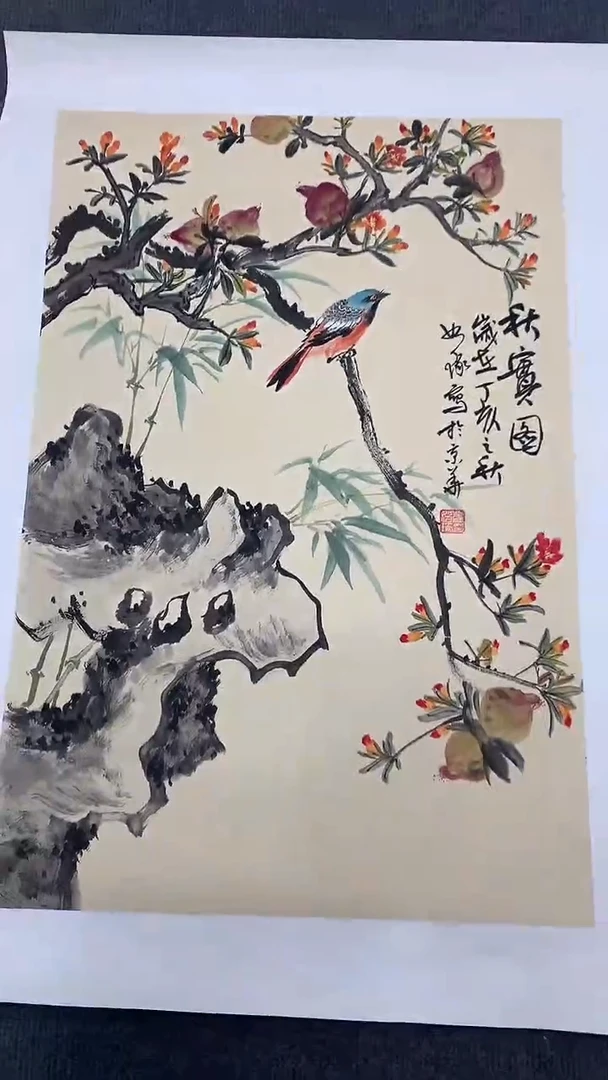 秋實图
歲在丁亥之秋
如琢寫於京華